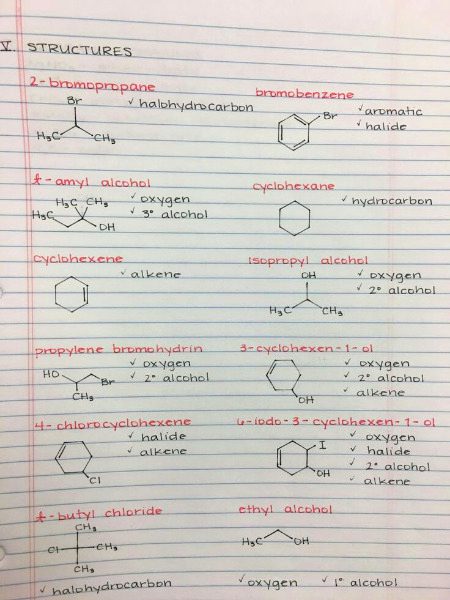 V. STRUCTURES
2-bromopropane
Br
✓ halohydrocarbon
H₃C CH₃
bromobenzene
Br
✓ aromatic
✓ halide
t-amyl alcohol
H₃C CH₃
H₃C
OH
✓ oxygen
✓ 3° alcohol
cyclohexane
✓ hydrocarbon
cyclohexene
✓ alkene
isopropyl alcohol
OH
H₃C CH₃
✓ oxygen
✓ 2° alcohol
propylene bromohydrin
HO
Br
CH₃
✓ oxygen
✓ 2° alcohol
3-cyclohexen-1-ol
OH
✓ oxygen
✓ 2° alcohol
✓ alkene
4-chlorocyclohexene
✓ halide
✓ alkene
Cl
6-iodo-3-cyclohexen-1-ol
I
OH
✓ oxygen
✓ halide
✓ 2° alcohol
✓ alkene
t-butyl chloride
CH₃
Cl CH₃
CH₃
✓ halohydrocarbon
ethyl alcohol
H₃C OH
✓ oxygen ✓ 1° alcohol